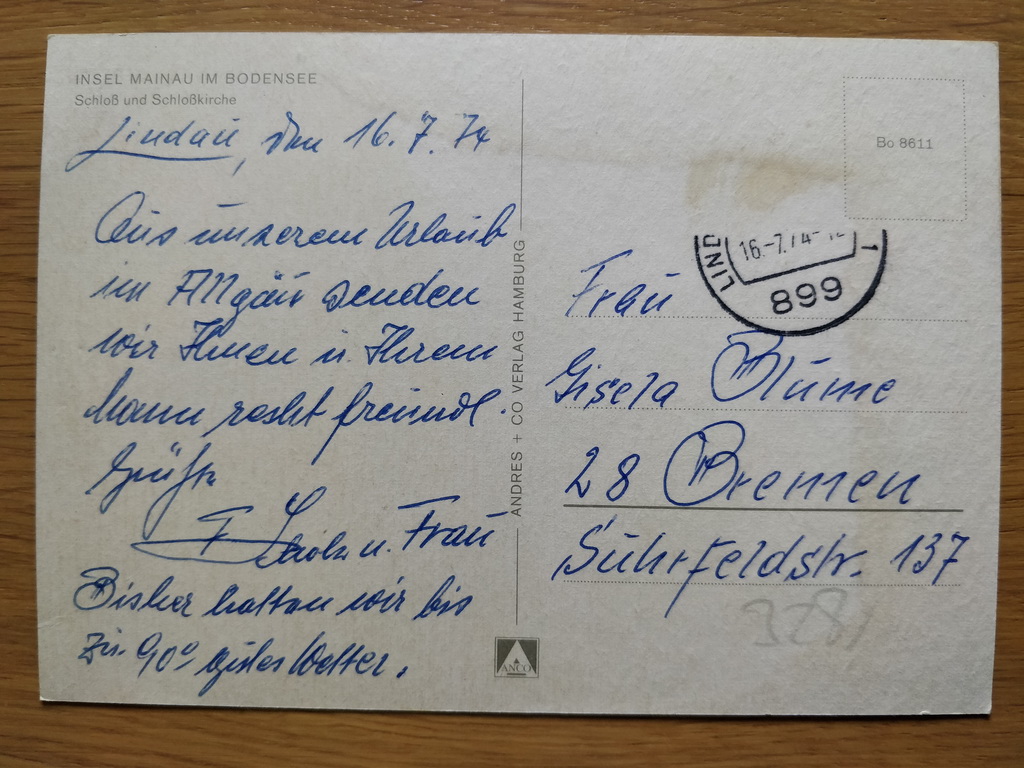 INSEL MAINAU IM BODENSEE
Schloß und Schloßkirche
Lindau, den 16.7.74
Aus unserem Urlaub
im Allgäu senden
wir Ihnen u. Ihrem
Mann recht freundl.
Grüße
F. u. Frau
Bisher hatten wir bis
zu 90° gutes Wetter.
ANDRES + CO VERLAG HAMBURG
ANCO
Bo 8611
LIND
16.-7.74-12
1
899
Frau
Gisela Blume
28 Bremen
Suhrfeldstr. 137